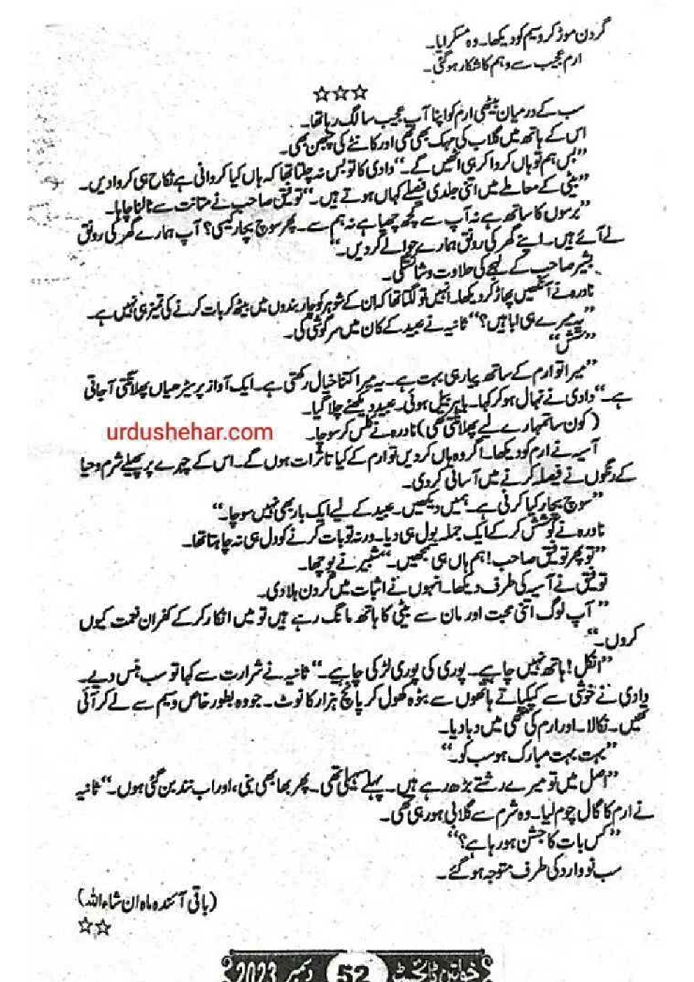 گردن موڑ کر وسیم کو دیکھا۔ وہ مسکرایا۔
ارم عجیب سے وہم کا شکار ہو گئی۔
☆☆☆
سب کے درمیان بیٹھی ارم کو اپنا آپ عجیب سا لگ رہا تھا۔
اس کے ہاتھ میں گلاب کی مہک بھی تھی اور کانٹے کی چبھن بھی۔
”بس ہم تو ہاں کروا کر ہی اٹھیں گے۔“ دادی کا تو بس نہ چلتا تھا کہ ہاں کیا کروانی ہے نکاح ہی کروا دیں۔
”بیٹی کے معاملے میں اتنی جلدی فیصلے کہاں ہوتے ہیں۔“ توفیق صاحب نے متانت سے ٹالنا چاہا۔
”برسوں کا ساتھ ہے نہ آپ سے کچھ چھپا ہے نہ ہم سے۔ پھر سوچ بچار کیسی؟ آپ ہمارے گھر کی رونق
لے آئے ہیں۔ اپنے گھر کی رونق ہمارے حوالے کر دیں۔“
بشیر صاحب کے لہجے کی حلاوت و شائستگی۔
نادرہ نے آنکھیں پھاڑ کر دیکھا۔ انہیں تو لگتا تھا کہ ان کے شوہر کو چار بندوں میں بیٹھ کر بات کرنے کی تمیز ہی نہیں ہے۔
”یہ میرے ہی ابا ہیں؟“ ثانیہ نے عبید کے کان میں سرگوشی کی۔
”شش“
”میرا تو ارم کے ساتھ پیار ہی بہت ہے۔ یہ میرا کتنا خیال رکھتی ہے۔ ایک آواز پر سیڑھیاں پھلانگتی آجاتی
ہے۔“ دادی نے نہال ہو کر کہا۔ باہر بیل ہوئی۔ عبید دیکھنے چلا گیا۔
(کون سا تمہارے لیے پھلانگتی تھی) نادرہ نے کلس کر سوچا۔
urdushehar.com
آسیہ نے ارم کو دیکھا۔ اگر وہ ہاں کر دیں تو ارم کے کیا تاثرات ہوں گے۔ اس کے چہرے پر پھیلے شرم و حیا
کے رنگوں نے فیصلہ کرنے میں آسانی کر دی۔
”سوچ بچار کیا کرنی ہے۔ ہمیں دیکھیں۔ عبید کے لیے ایک بار بھی نہیں سوچا۔“
نادرہ نے کوشش کر کے ایک جملہ بول ہی دیا۔ ورنہ تو بات کرنے کو دل ہی نہ چاہتا تھا۔
”تو پھر توفیق صاحب! ہم ہاں ہی سمجھیں۔“ شبیر نے پوچھا۔
توفیق نے آسیہ کی طرف دیکھا۔ انہوں نے اثبات میں گردن ہلا دی۔
”آپ لوگ اتنی محبت اور مان سے بیٹی کا ہاتھ مانگ رہے ہیں تو میں انکار کر کے کفران نعمت کیوں
کروں۔“
”انکل! ہاتھ نہیں چاہیے۔ پوری کی پوری لڑکی چاہیے۔“ ثانیہ نے شرارت سے کہا تو سب ہنس دیے۔
دادی نے خوشی سے کپکپاتے ہاتھوں سے بٹوہ کھول کر پانچ ہزار کا نوٹ۔ جو وہ بطور خاص وسیم سے لے کر آئی
تھیں۔ نکالا۔ اور ارم کی مٹھی میں دبا دیا۔
”بہت بہت مبارک ہو سب کو۔“
”اصل میں تو میرے رشتے بڑھ رہے ہیں۔ پہلے سہیلی تھی۔ پھر بھابھی بنی، اور اب نند بن گئی ہوں۔“ ثانیہ
نے ارم کا گال چوم لیا۔ وہ شرم سے گلابی ہو رہی تھی۔
”کس بات کا جشن ہو رہا ہے؟“
سب نووارد کی طرف متوجہ ہو گئے۔
(باقی آئندہ ماہ ان شاء اللہ)
☆☆
خواتین ڈائجسٹ 52 دسمبر 2023